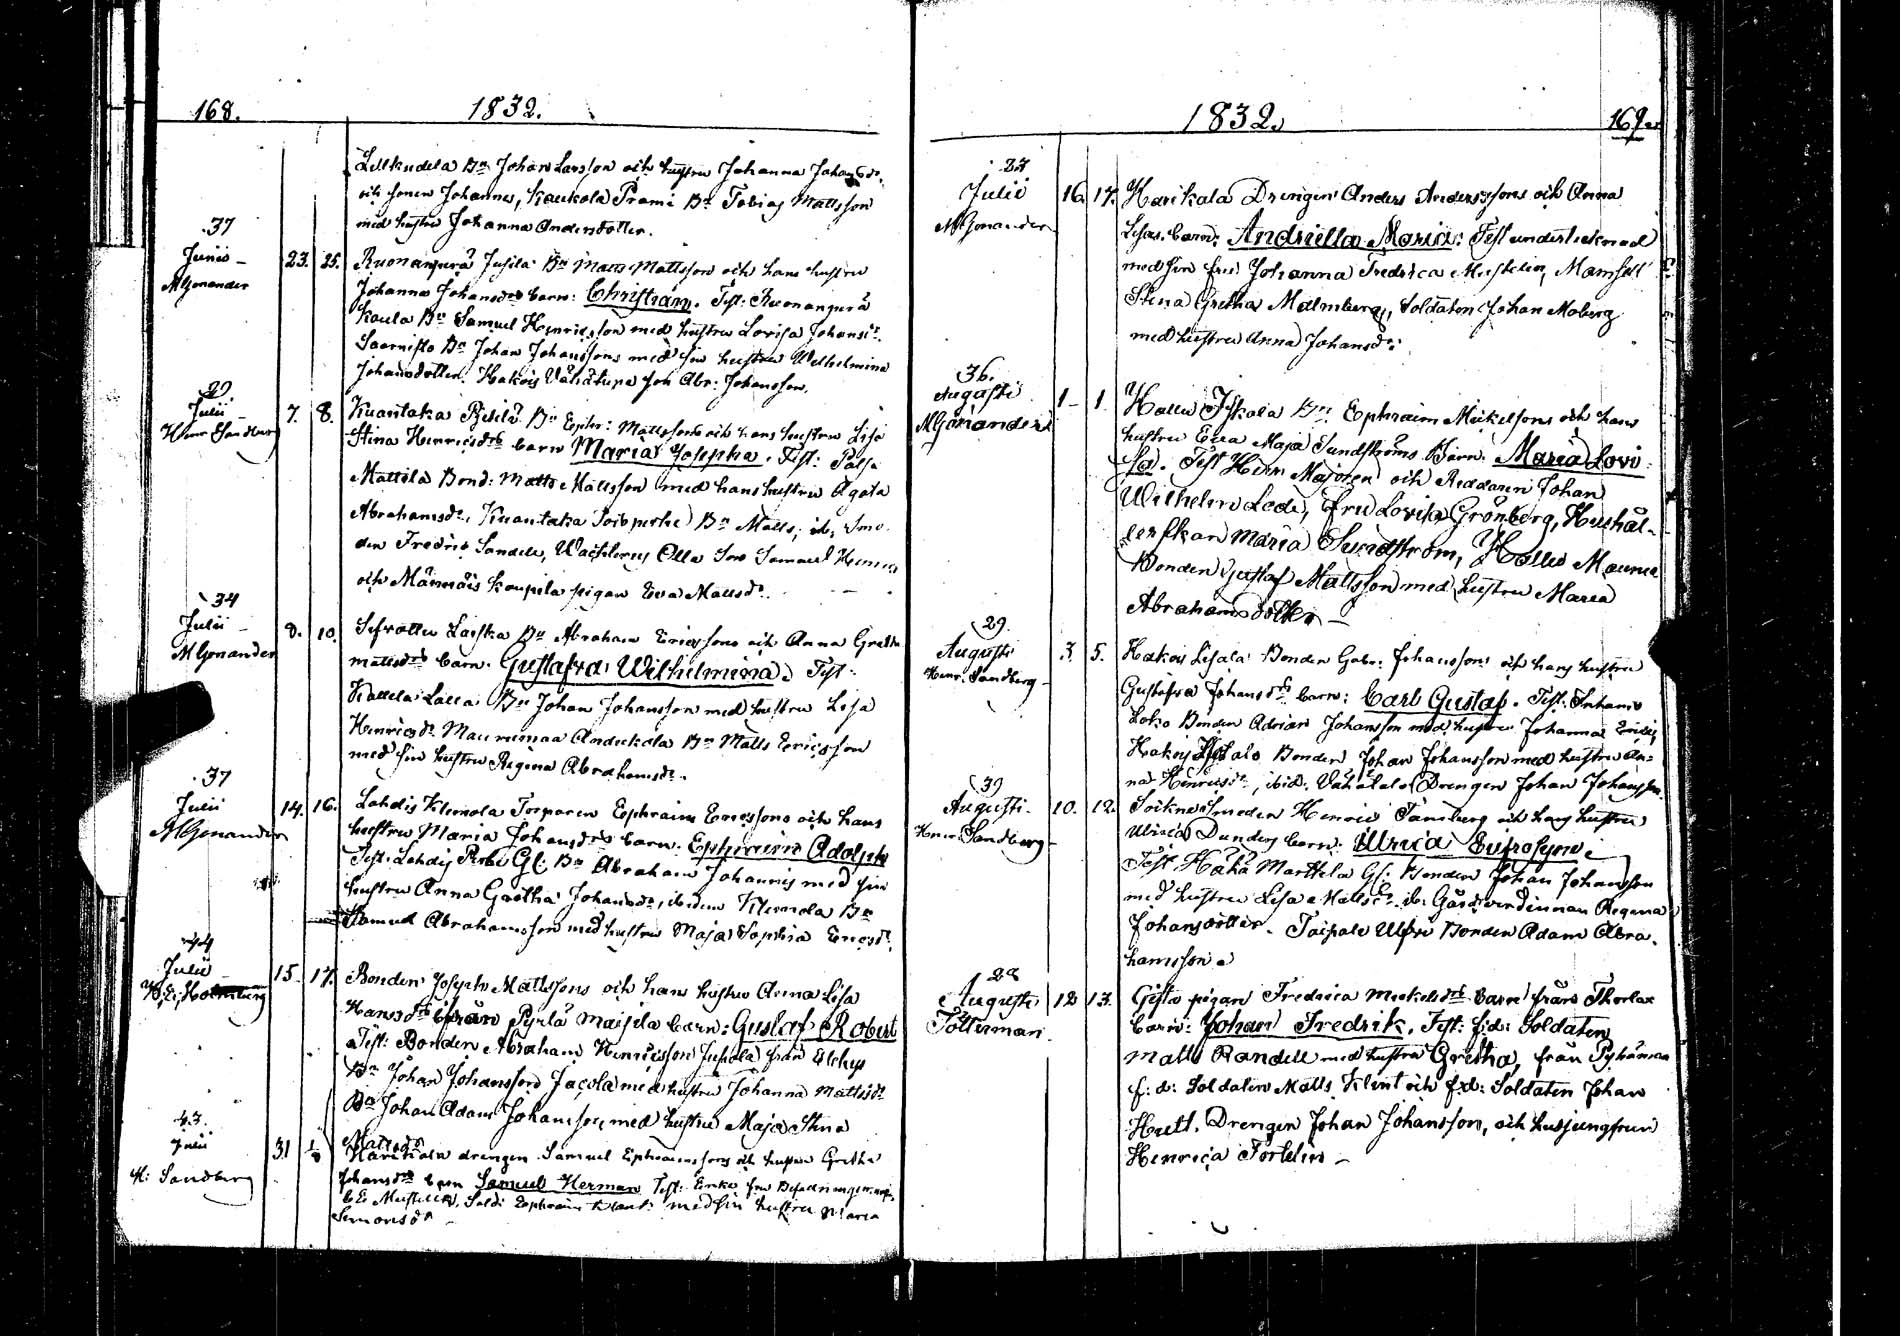 168. 1832.
Lillkudela Bn Johan Larsson och hustru Johanna Johansdr.
och sonen Johannes, Kaukola Prami Bn Tobias Mattsson
med hustru Johanna Andersdotter.
37
Junii 23. 25. Ruonanperä Jusila Bn Matts Mattsson och hans hustru
MGonander Johanna Johansdrs barn: Christian. Test: Ruonanperä
Kaula Bn Samuel Henricsson med hustru Lovisa Johansdr.
Saarnisto Bn Johan Johanssons med sin hustru Wilhelmina
Johansdotter. Hakois Vähätupa Joh Abr: Johansson.
29
Julii 7. 8. Kuantaka Bn Ephr: Mattssons och hans hustru Lisa
Henr Sandberg Stina Henricsdrs barn Maria Josepha. Test: Palja
Mattila Bond: Matts Mattsson med hans hustru Agata
Abrahamsdr. Kuantaka Bn Matts, ib, Sme-
den Fredric Sandell, Ulla Samuel
och Männäis Kaupila pigan Eva Mattsdr.
34
Julii 8. 10. Bn Abraham Ericssons och Anna Gretha
MGonander Mattsdrs barn. Gustafva Wilhelmina. Test:
Kallela Lalla Bn Johan Johansson med hustru Lisa
Henricsdr. Maunumaa Andickala Bn Matts Ericsson
med sin hustru Regina Abrahamsdr.
37
Julii 14. 16. Lahdis Klemola Torparen Ephraim Ericssons och hans
MGonander hustru Maria Johansdrs barn. Ephraim Adolph
Test. Lahdis Perho Gl: Bn Abraham Johannis med sin
hustru Anna Gretha Johansdr, ibidem Klemola Bn
Samuel Abrahamsson med hustru Maja Sophia Ericsdr.
44
Julii 15. 17. Bonden Joseph Mattssons och hans hustru Anna Lisa
Holmberg Hansdrs från Pyrlä Maijela barn: Gustaf Robert
Test: Bonden Abraham Henricsson Jusala från
Bn Johan Johansson Jacola med hustru Johanna Mattsdr
Bn Johan Adam Johansson med hustru Maja Stina
Mattsdr
43.
Julii 31 1/8 Harikala drengen Samuel Ephraimssons och hustru Gretha
H: Sandberg Johansdrs barn Samuel Herman Test: Enke fru
CE Mustelin, Sold: Ephraim Klant: med sin hustru Maria
Simonsdr
1832. 169.
23
Julii 16. 17. Harikala Drengen Anders Anderssons och Anna
MGonander Lisas barn: Andriella Maria: Test undertecknad
med sin fru Johanna Fredrica Mustelin, Mamsell
Stina Gretha Malmberg, Soldaten Johan Moberg
med hustru Anna Johansdr:
36.
Augusti 1 1 Hallu Iskala Bn Ephraim Mickelsons och hans
MGonander hustru Eva Maja Sundströms Barn: Maria Lovi-
sa. Test Herr Majoren och Riddaren Johan
Wilhelm Lode, fru Lovisa Grönberg, Hushål-
lerskan Maria Sundström, Hallu Maunu
Bonden Gustaf Mattsson med hustru Maria
Abrahamsdotter
29.
Augusti 3. 5. Hakois Lisala Bonden Gabr: Johanssons och hans hustru
Henr. Sandberg Gustafva Johansdrs barn: Carl Gustaf. Test:
Loko Bonden Adrian Johansson med hustru Johanna
Hakois Bonden Johan Johansson med hustru An-
na Henricsdr, ibid: Vähätalo Drengen Johan Johansson.
39
Augusti 10. 12. Sockne Smeden Henric Tamberg och hans hustru
Henr. Sandberg Ulrica Dunders barn: Ulrica Eufrosyne
Test Häkä Marttila Gl: Bonden Johan Johansson
med hustru Lisa Mattsdr. ib: Gårdsverdinnan Regina
Johansdotter. Taipale Bonden Adam Abra-
hamsson.
28
Augusti 12 13. Gifta pigan Fredrica Mickelsdrs barn från Thorlax
Tötterman barn: Johan Fredrik. Test: f:d: Soldaten
Matts Randell med hustru Gretha, från Pyhämaa
f: d: Soldaten Matts Klint och f:d: Soldaten Johan
Hutt. Drengen Johan Johansson, och husjungfrun
Henrica Forselin